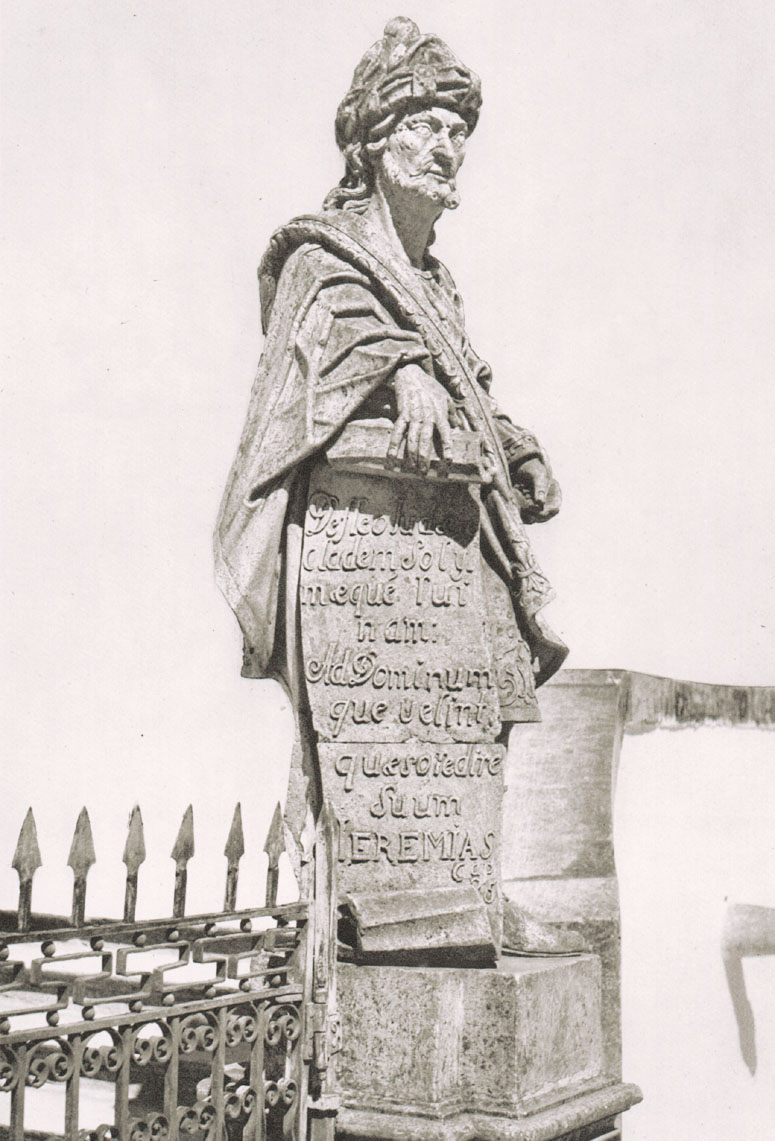 Defleo
cladem Soly
mæque Rui
nam:
Ad Dominum
que velint
quæso redire
suum
IEREMIAS
Cap